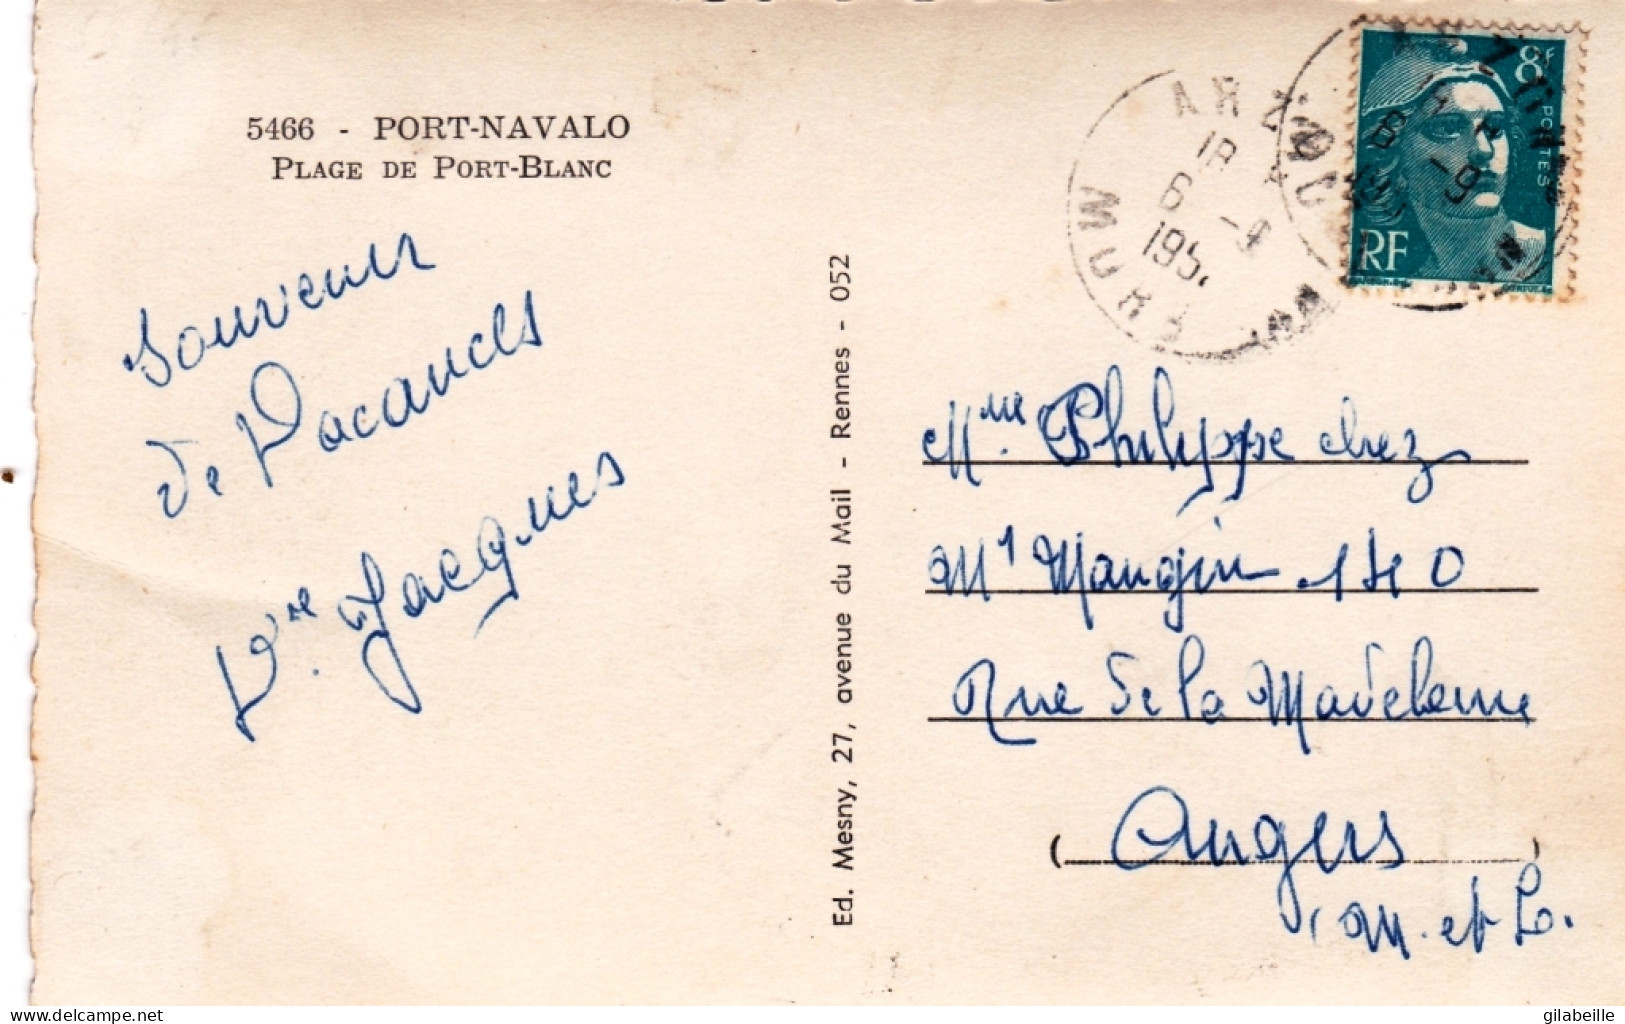 5466 - PORT-NAVALO
PLAGE DE PORT-BLANC
Souvenir
de Vacances
Vve. Jacques
Ed. Mesny, 27, avenue du Mail - Rennes - 052
ARZON
18
6 - 9
195
8F
POSTES
RF
Mme. Philippe chez
Mr Mangin 140
Rue de la Madeleine
( Angers )
(M. et L.
delcampe.net
gilabeille